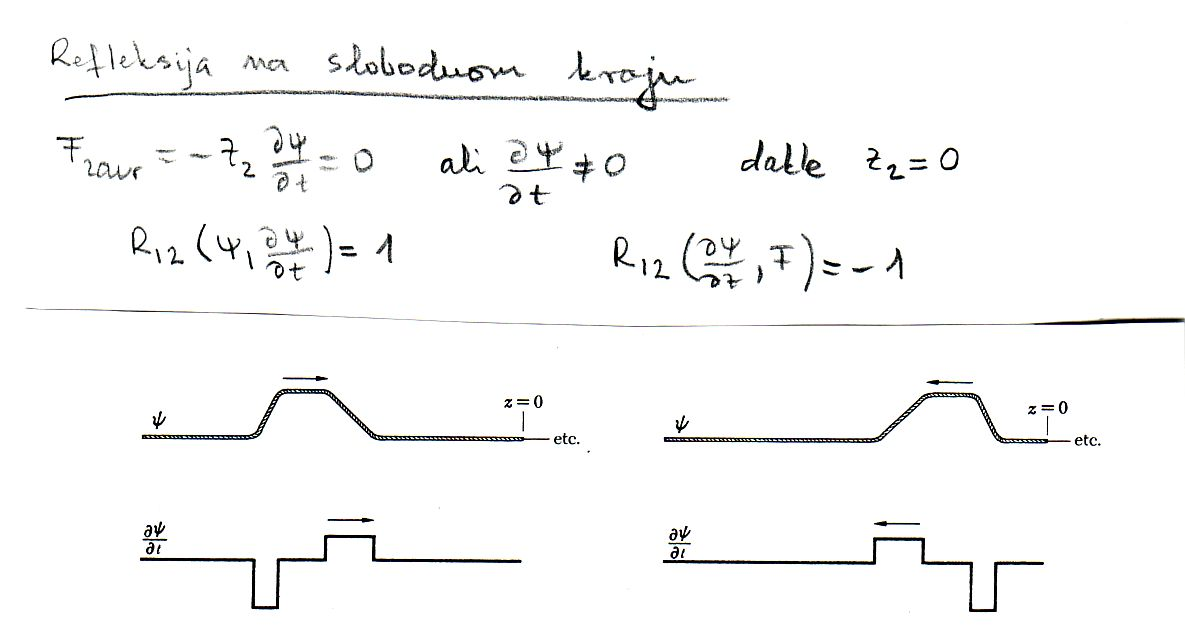 Refleksija na slobodnom kraju
F₂ₐᵥᵣ = -Z₂ ∂ψ/∂t = 0 ali ∂ψ/∂t ≠ 0 dakle Z₂ = 0
R₁₂ (ψ, ∂ψ/∂t) = 1 R₁₂ (∂ψ/∂z, F) = -1
ψ z = 0 etc. ψ z = 0 etc.
∂ψ/∂t ∂ψ/∂t